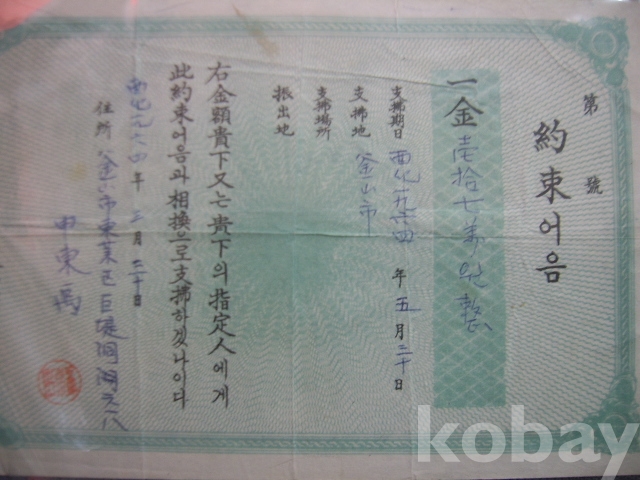 第 號
約束어음
一金 壹拾七萬원整
支拂期日 西紀一九六四 年 五 月 二十 日
支拂地 釜山市
支拂場所
振出地
右金額貴下又는貴下의指定人에게
此約束어음과相換으로支拂하겠나이다
西紀一九六四 年 二 月 二十 日
住所 釜山市東萊區巨堤洞
申東
kobay